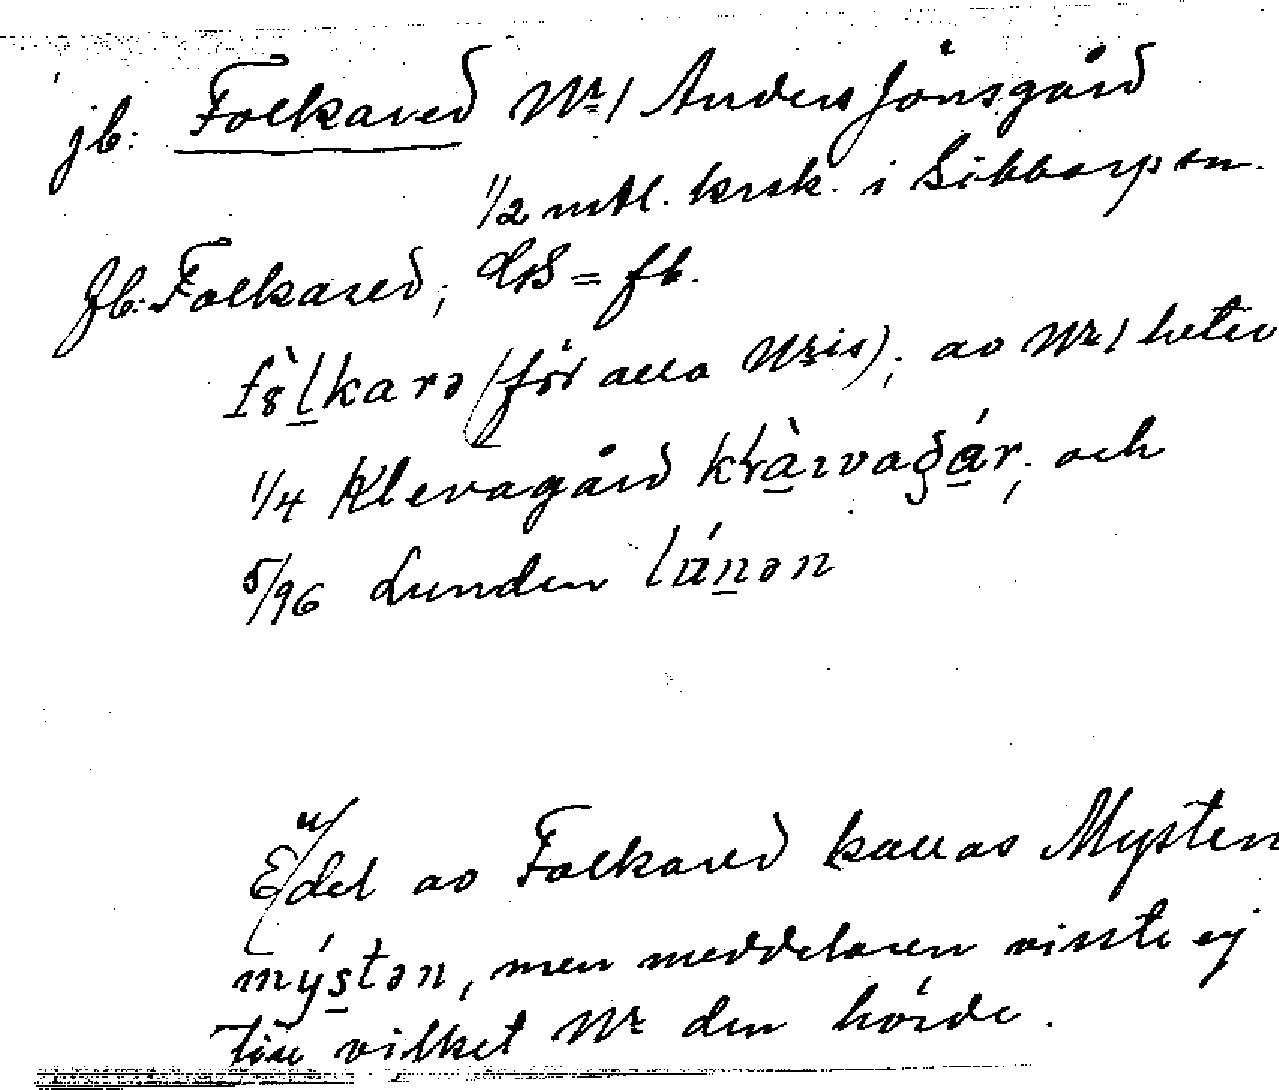 jb: Folkared Nr 1 Anders Jönsgård
1/2 mtl. krsk. i Sibbarps sn.
fb: Folkared; GS = fb.
(för alla Nris); av Nr 1 heter
1/4 Klevagård och
5/96 Lunden
E/del av Folkared kallas Mysten
mýstən, men meddelaren visste ej
till vilket Nr den hörde.